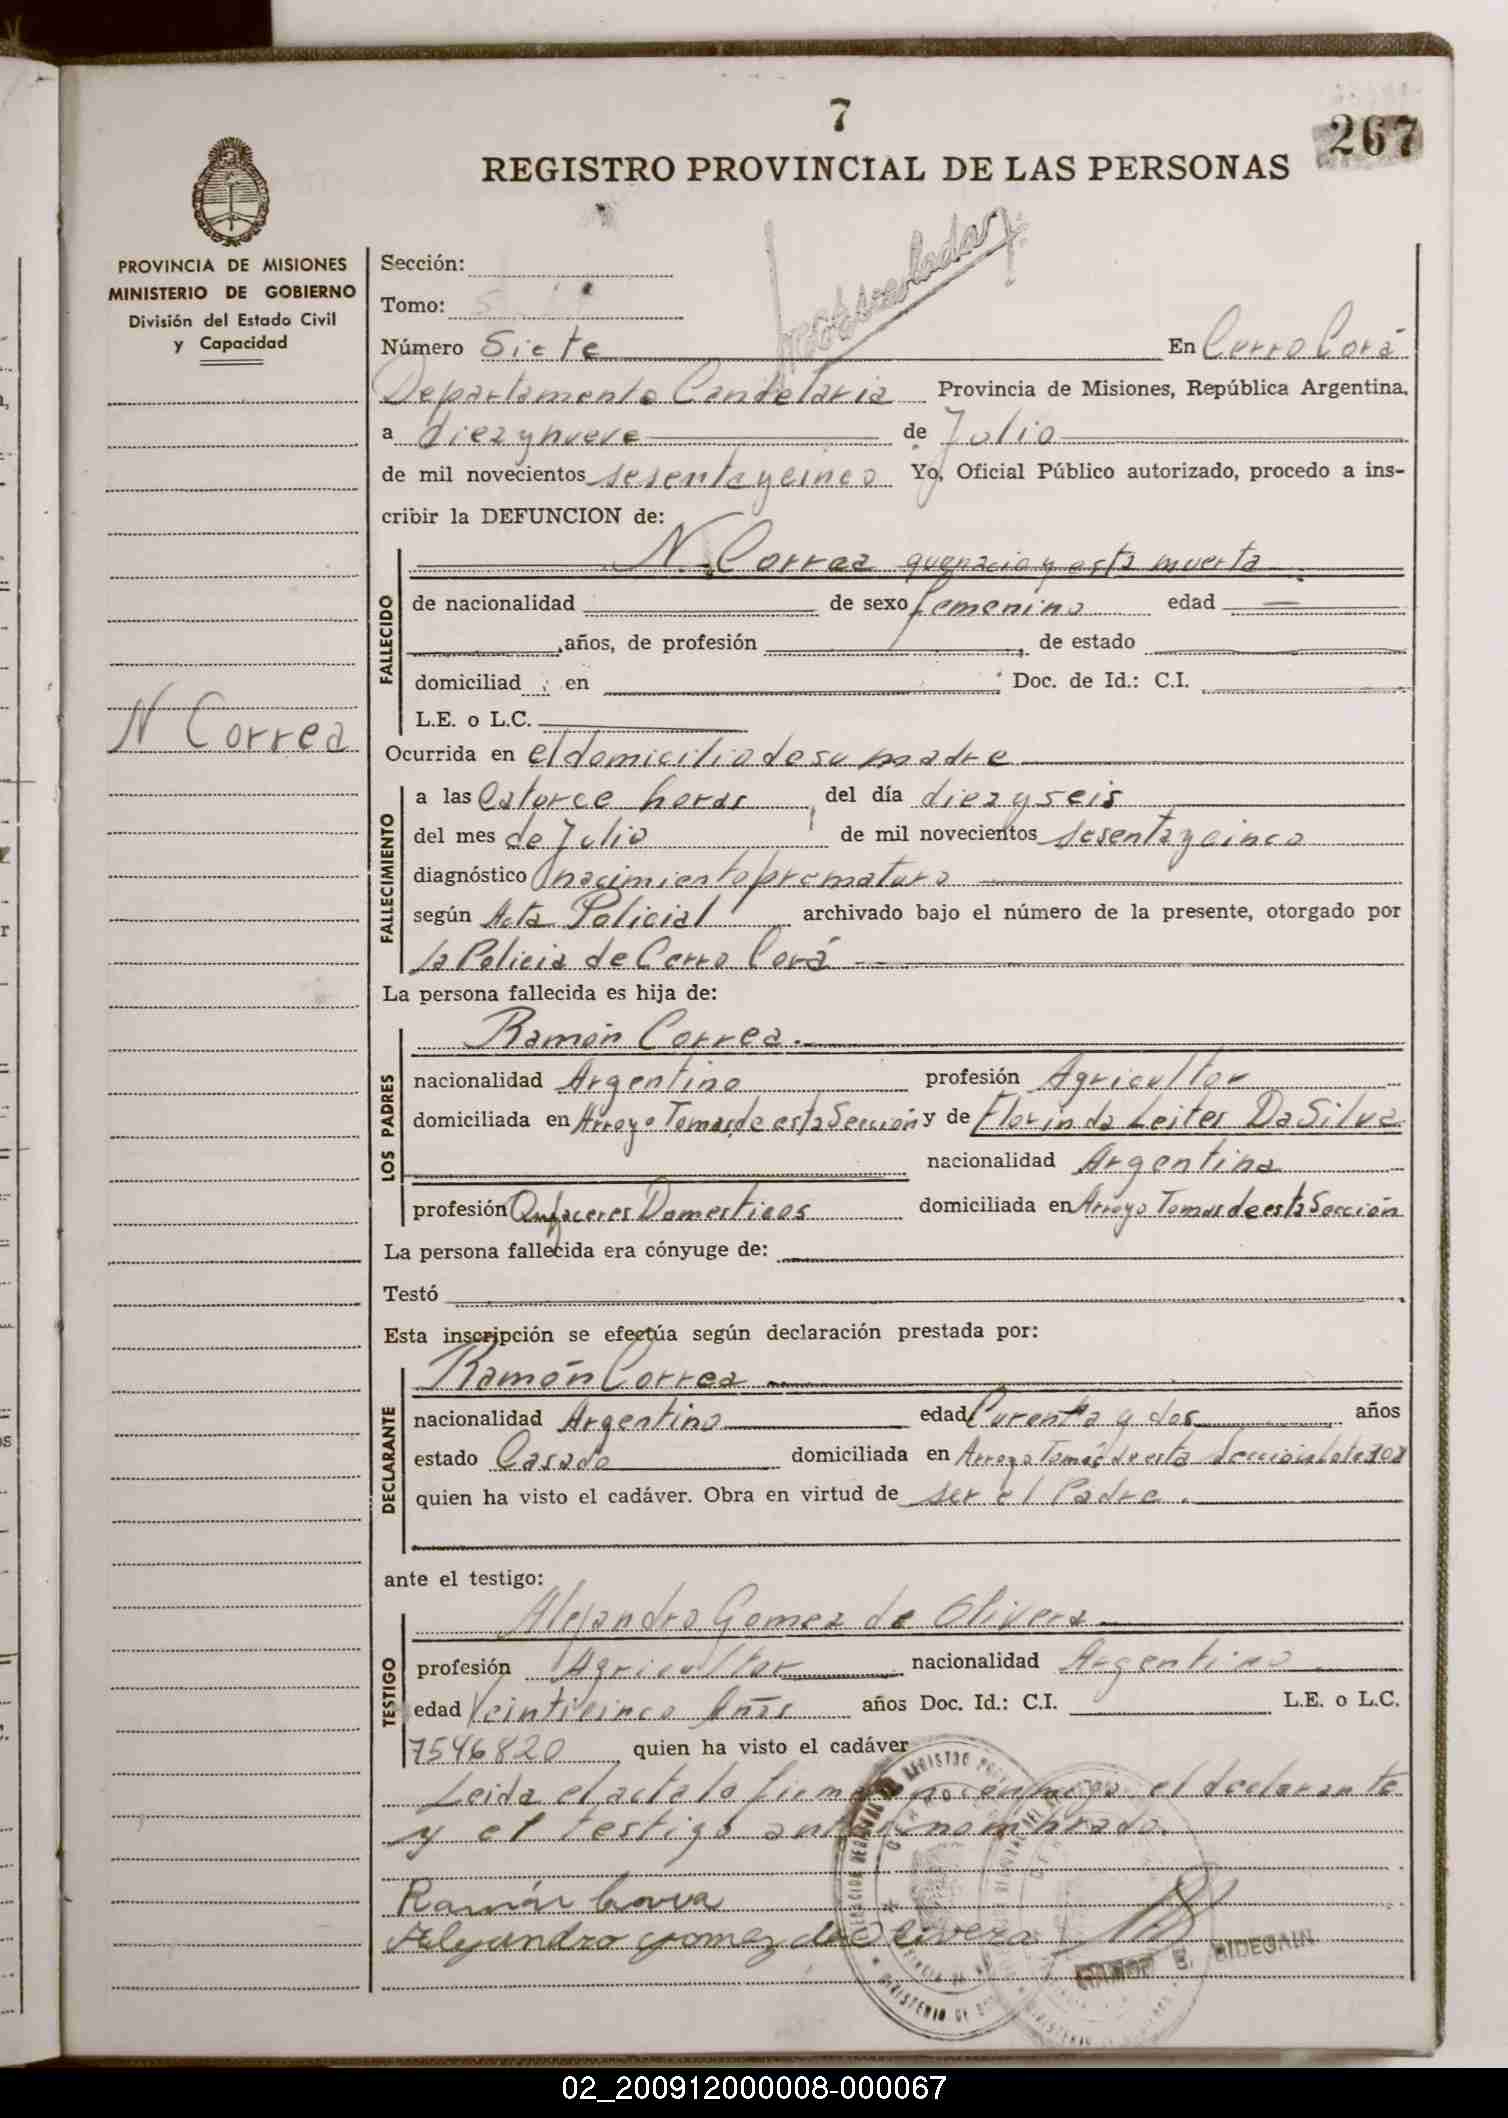 7
267
REGISTRO PROVINCIAL DE LAS PERSONAS
PROVINCIA DE MISIONES
MINISTERIO DE GOBIERNO
División del Estado Civil
y Capacidad
N Correa
Sección:
Tomo:
Número Siete En Cerro Corá
Departamento Candelaria Provincia de Misiones, República Argentina,
a diez y nueve de Julio
de mil novecientos sesenta y cinco Yo, Oficial Público autorizado, procedo a ins-
cribir la DEFUNCION de:
N. Correa que nacio y esta muerta
FALLECIDO
de nacionalidad de sexo femenino edad
años, de profesión de estado
domiciliad en Doc. de Id.: C.I.
L.E. o L.C.
Ocurrida en el domicilio de su madre
FALLECIMIENTO
a las Catorce horas del día diez y seis
del mes de Julio de mil novecientos sesenta y cinco
diagnóstico nacimiento prematuro
según Acta Policial archivado bajo el número de la presente, otorgado por
la Policia de Cerro Corá
La persona fallecida es hija de:
LOS PADRES
Ramón Correa.
nacionalidad Argentino profesión Agricultor
domiciliada en Arroyo Tomas de esta Sección y de Florinda Leites Da Silva
nacionalidad Argentina
profesión Quehaceres Domesticos domiciliada en Arroyo Tomas de esta Sección
La persona fallecida era cónyuge de:
Testó
Esta inscripción se efectúa según declaración prestada por:
DECLARANTE
Ramón Correa
nacionalidad Argentino edad Curenta y dos años
estado Casado domiciliada en Arroyo Tomas de esta Sección lote
quien ha visto el cadáver. Obra en virtud de ser el Padre.
ante el testigo:
TESTIGO
Alejandro Gomez de Olivera
profesión Agricultor nacionalidad Argentino
edad Veinticinco Años años Doc. Id.: C.I. L.E. o L.C.
7546820 quien ha visto el cadáver
Leida el acta lo firman conmigo el declarante
y el testigo antes nombrado.
Ramón Correa
Alejandro Gomez de Olivera
RAMON E. BIDEGAIN
02_200912000008-000067